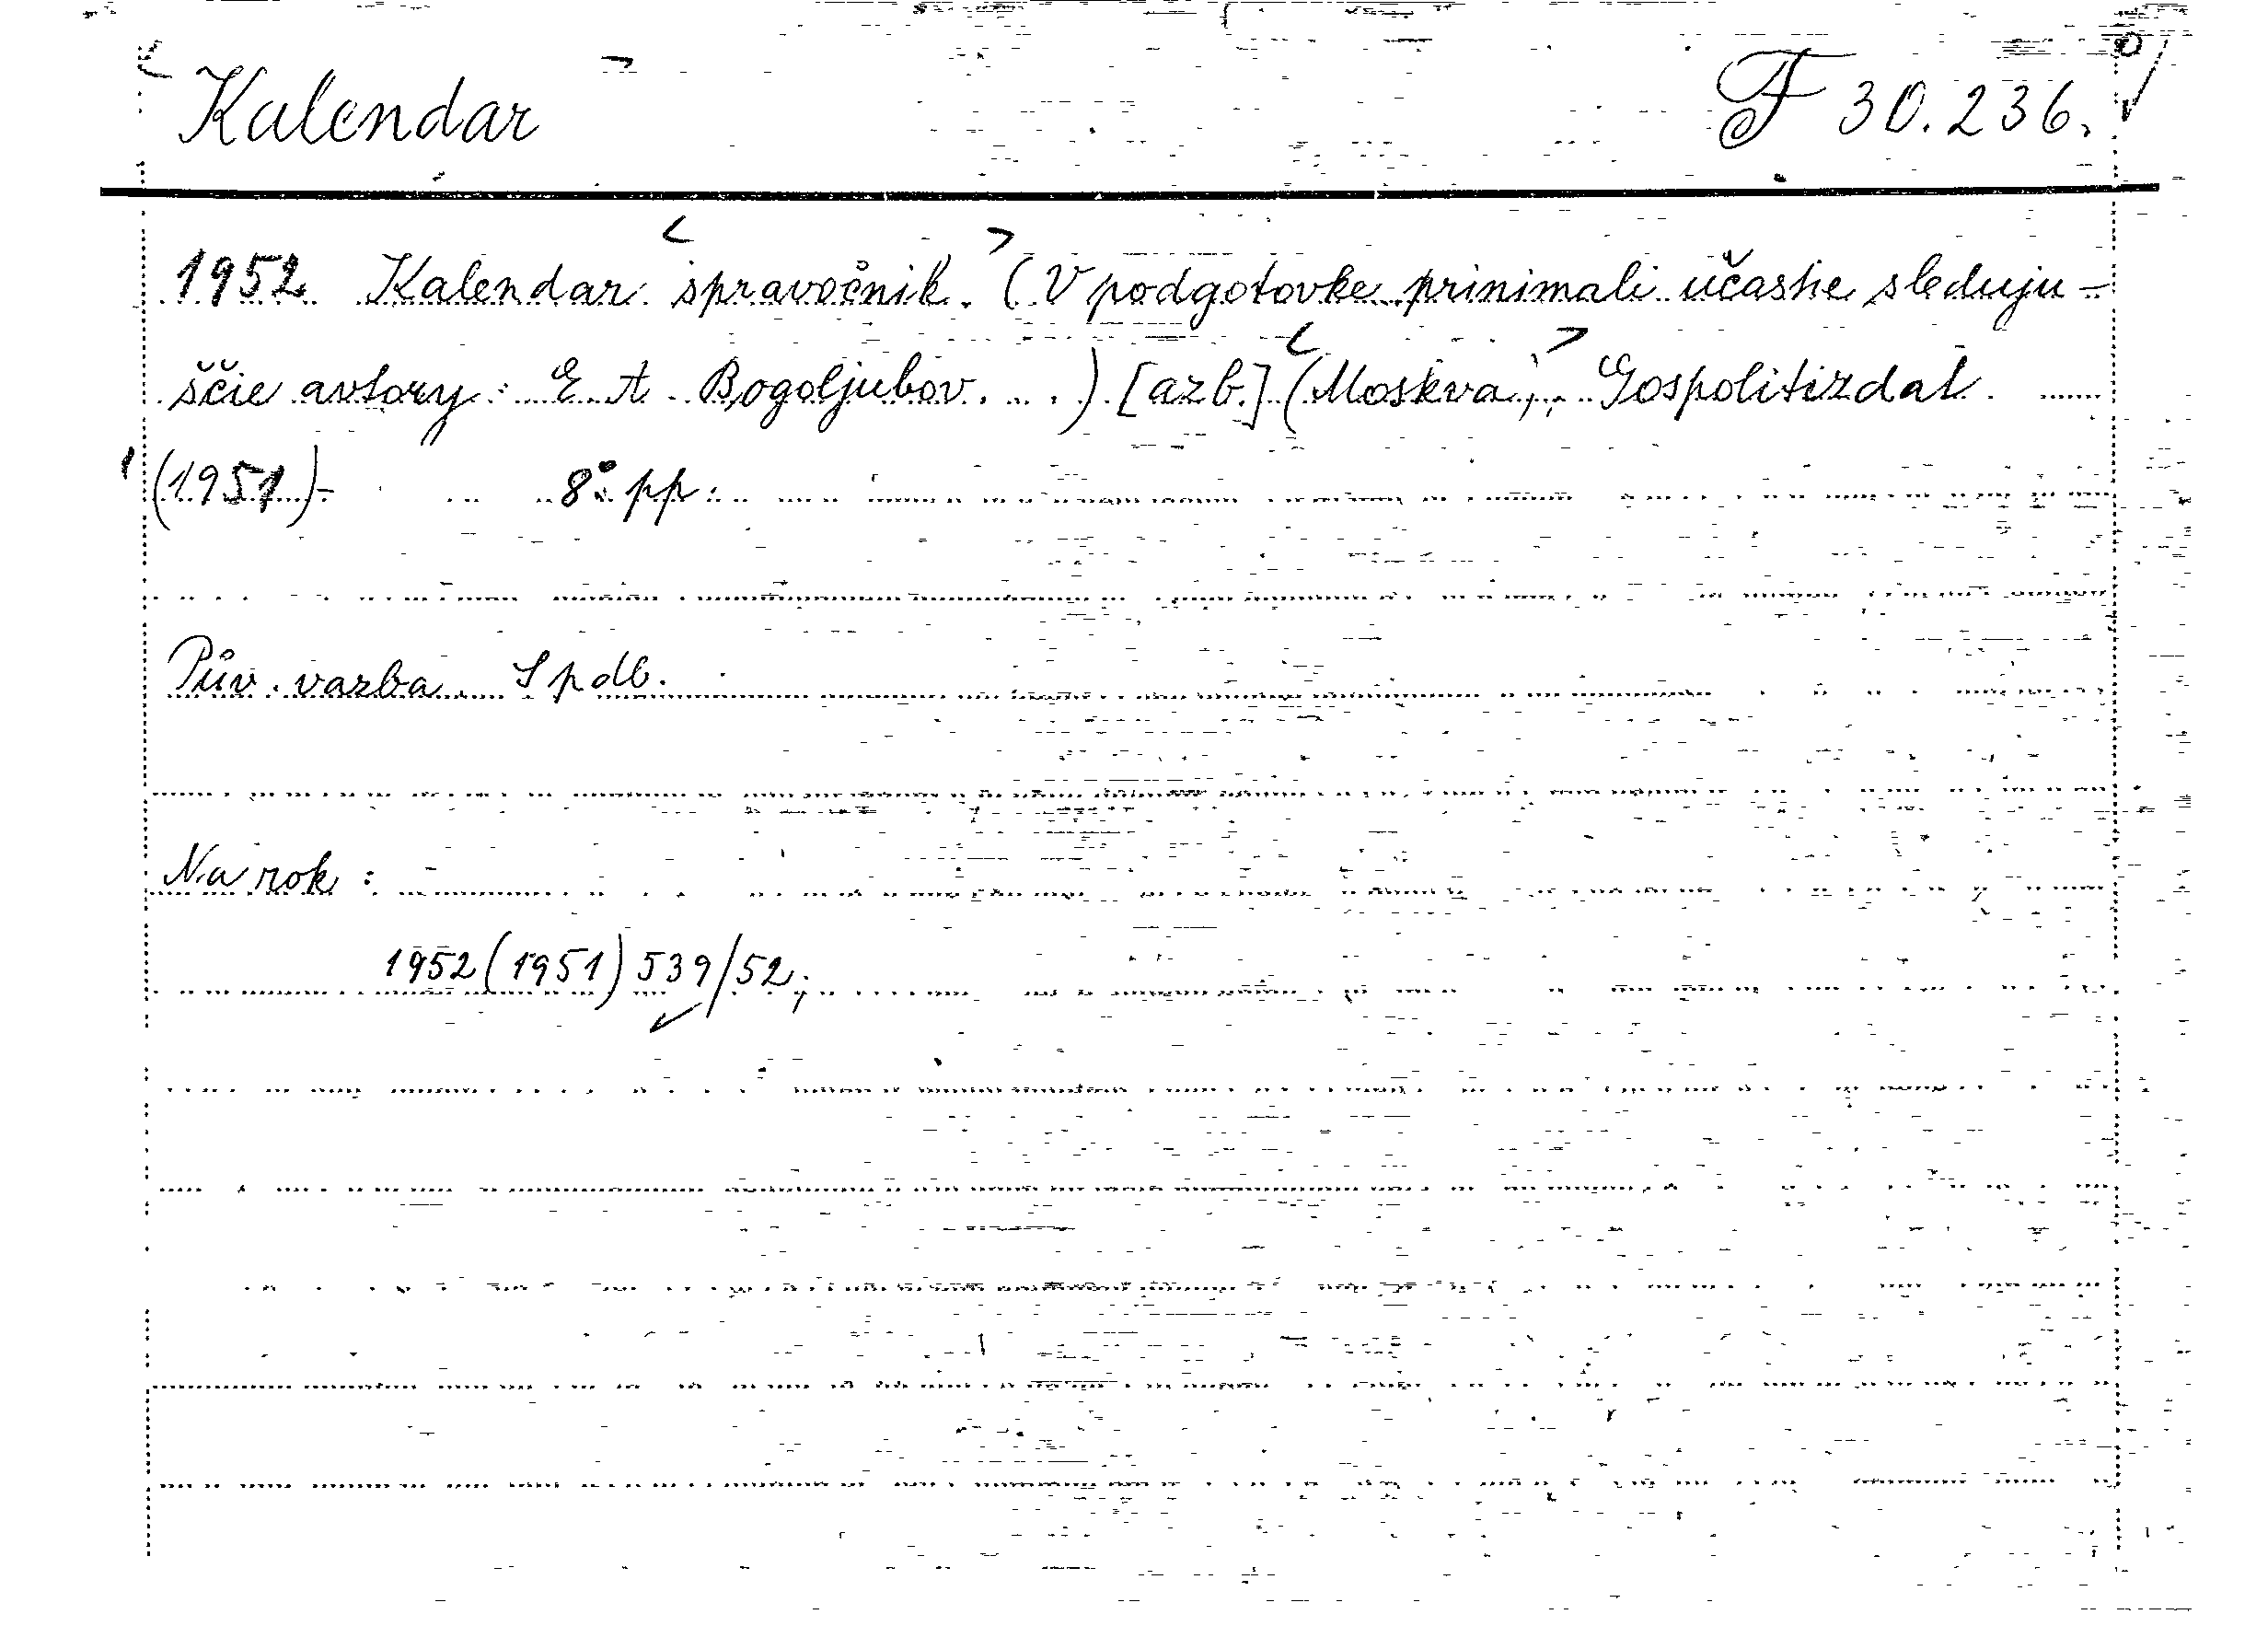 Kalendar F 30.236.
1952 Kalendar spravočnik. (V podgotovke prinimali učastie sleduju-
ščie avtory: E. A. Bogoljubov. . .) [azb.] (Moskva), Gospolitizdat
(1951)- 8° pp.
Pův. vazba. Spdb.
Na rok:
1952 (1951) 539/52;